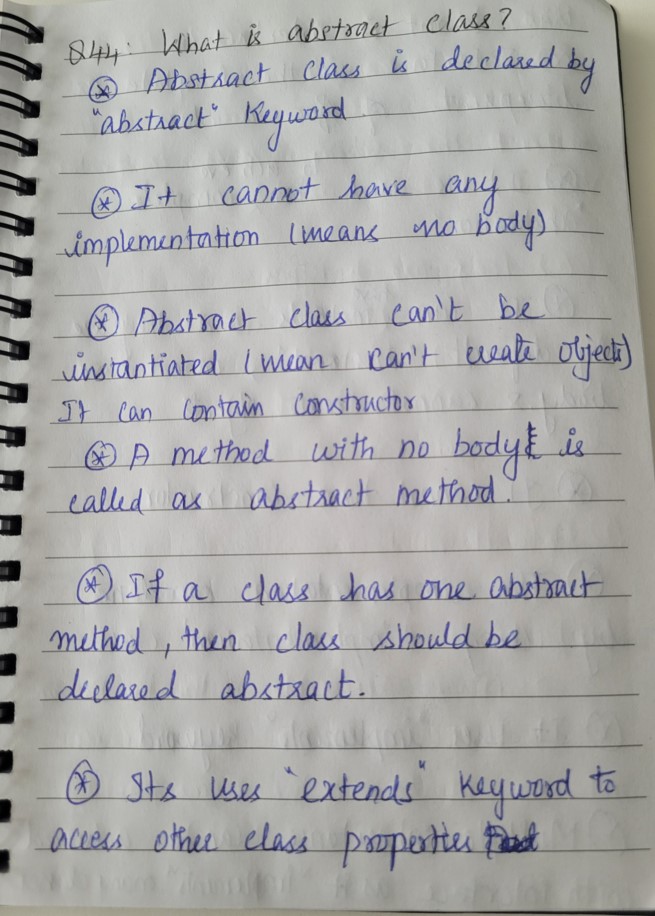 Q44: What is abstract class?
* Abstract class is declared by
"abstract" Keyword
* It cannot have any
implementation (means no body)
* Abstract class can't be
instantiated (mean can't create objects)
It can contain constructor
* A method with no body is
called as abstract method.
* If a class has one abstract
method, then class should be
declared abstract.
* Its uses "extends" keyword to
access other class properties